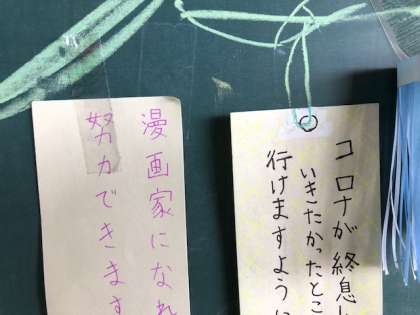 コロナが終息し
いきたかったとこ
行けますように
漫画家になれ
努力できます